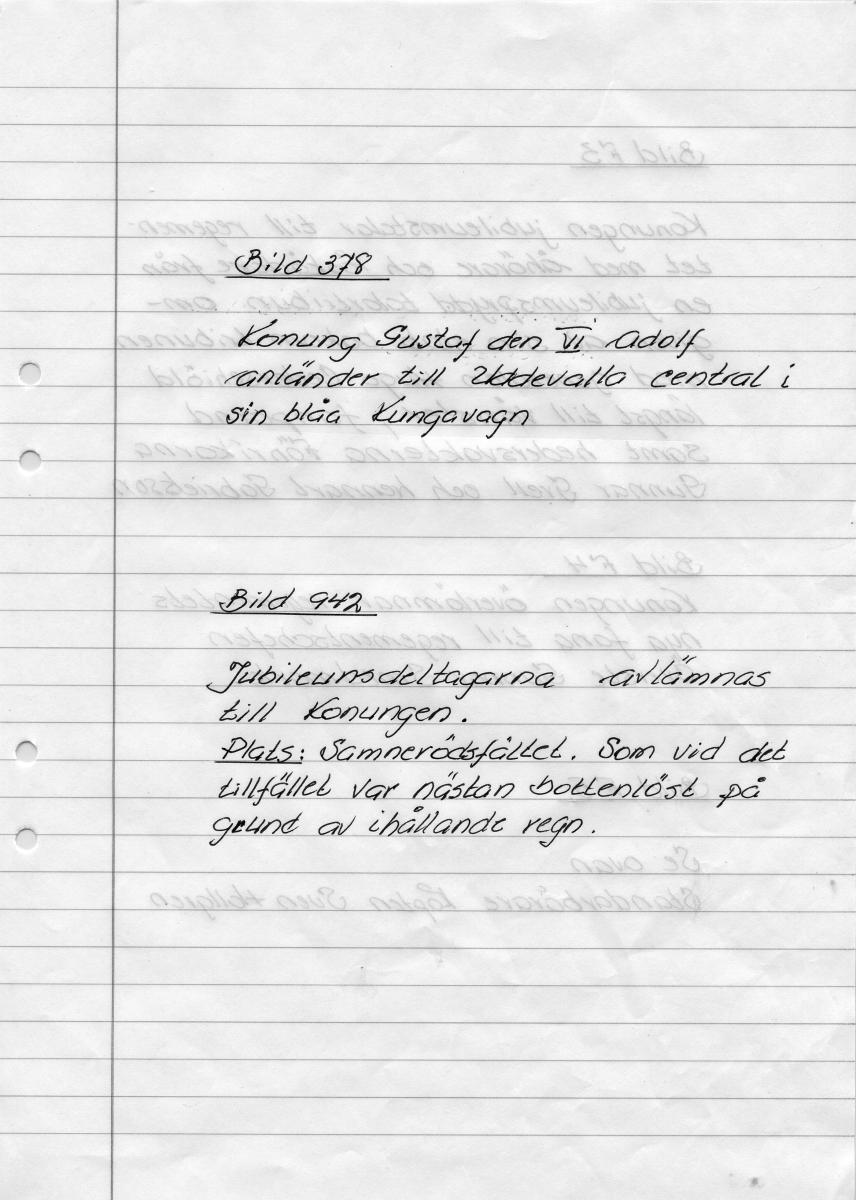 Bild 378
Konung Gustaf den VI Adolf
anländer till Uddevalla central i
sin blåa Kungavagn
Bild 942
Jubileunsdeltagarna avlämnas
till Konungen.
Plats: Samnerödsfältet. Som vid det
tillfället var nästan bottenlöst på
grund av ihållande regn.